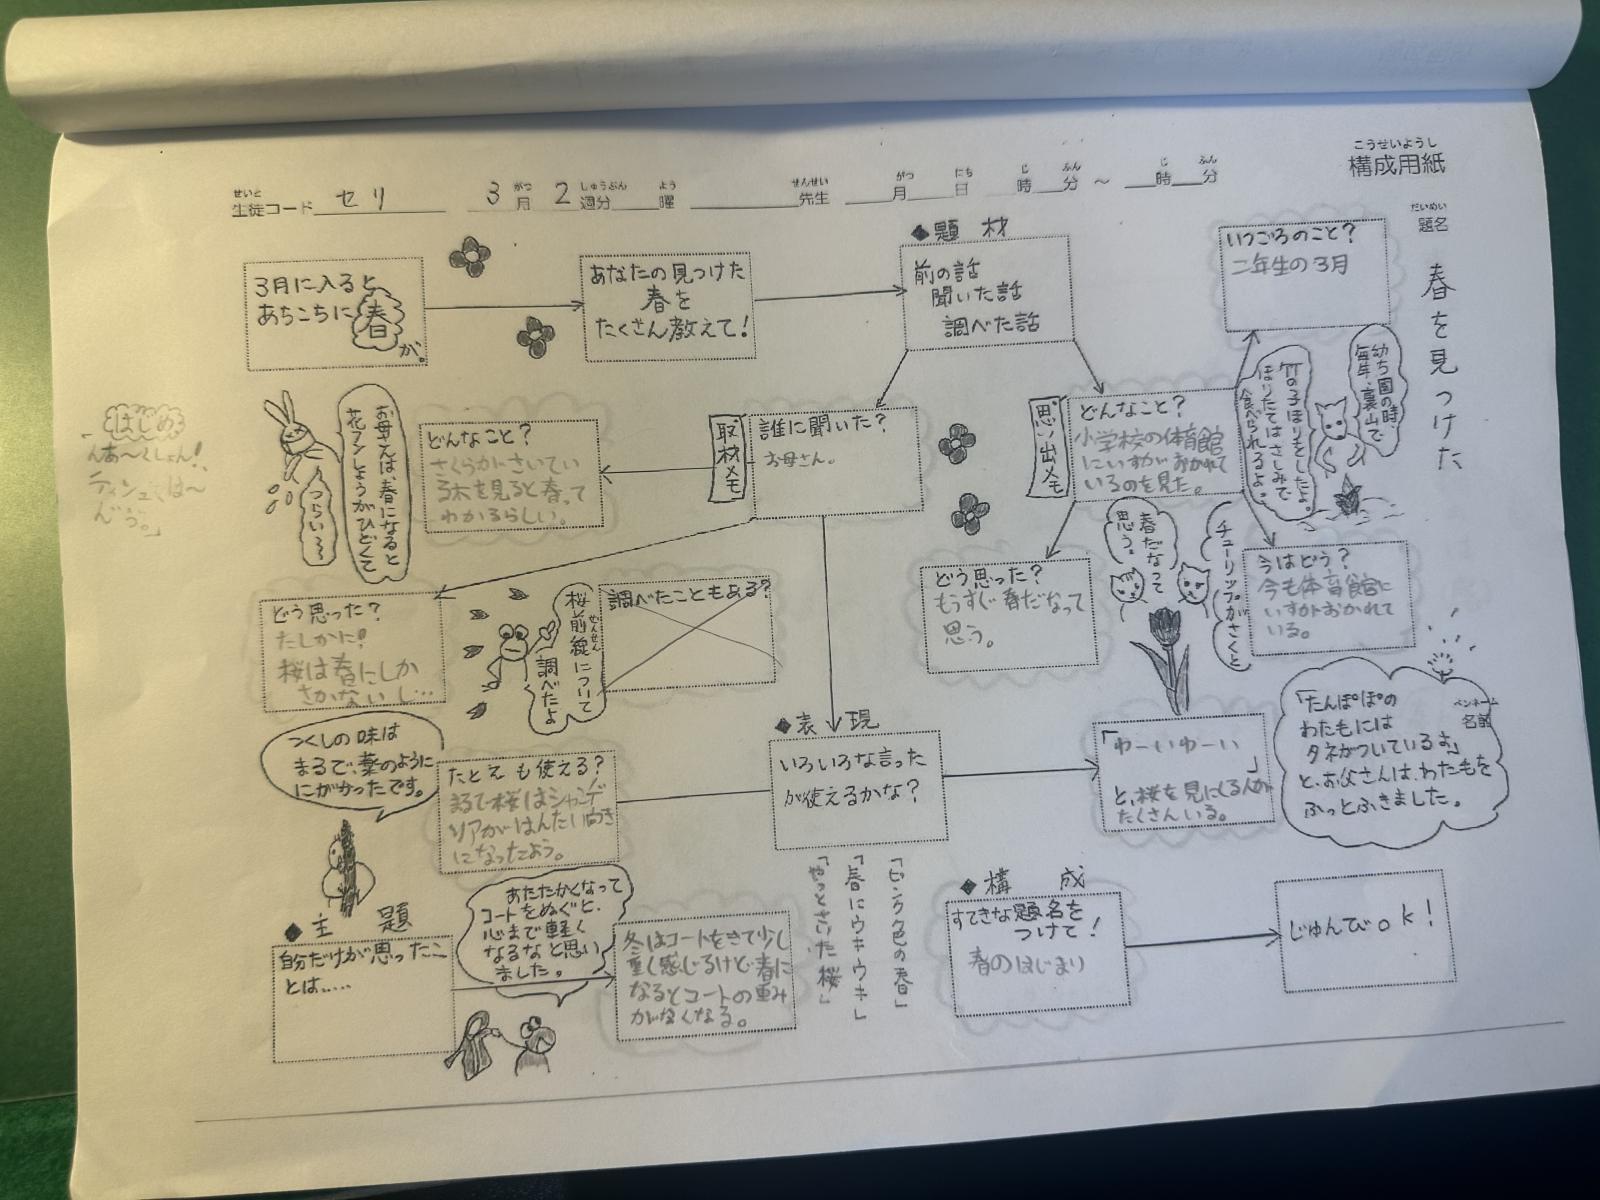 こうせいようし
構成用紙
せいと
生徒コード セリ 3月 2週分 曜 先生 月 日 時 分 ~ 時 分
がつ しゅうぶん よう せんせい がつ にち じ ふん じ ふん
だいめい
題名
春を見つけた
ペンネーム
名前
3月に入ると
あちこちに春
が。
あなたの見つけた
春を
たくさん教えて!
◆題 材
前の話
聞いた話
調べた話
いつごろのこと?
二年生の3月
幼ち園の時、
毎年、裏山で
竹の子ほりをしたよ。
ほりたてはさしみで
食べられるよ。
思い出メモ
どんなこと?
小学校の体育館
にいすがおかれて
いるのを見た。
取材メモ
誰に聞いた?
お母さん。
どんなこと?
さくらがさいてい
る木を見ると春って
わかるらしい。
お母さんは、春になると
花フンしょうがひどくて
つらい〜〜
はじめ
「んあ〜くしょん!、
ティシュくは〜
どう思った?
たしかに!
桜は春にしか
さかないし…
調べたこともある?
桜前線について
せんせん
調べたよ
どう思った?
もうすぐ春だなって
思う。
チューリップがさくと
春だなって
思う。
今はどう?
今も体育館に
いすがおかれて
いる。
「たんぽぽの
わたもには
タネがついているよ」
と、お父さんは、わたもを
ふっとふきました。
◆表 現
いろいろな言った
が使えるかな?
「わーいわーい
」
と、桜を見にくる人が
たくさんいる。
「ピンク色の春」
「春にウキウキ」
「やっとさいた桜」
たとえも使える?
まるで桜はシャンデ
リアがはんたい向き
になったよう。
つくしの味は
まるで、薬のように
にがかったです。
◆主 題
自分だけが思ったこ
とは……
あたたかくなって
コートをぬぐと、
心まで軽く
なるなと思い
ました。
冬はコートをきて少し
重く感じるけど春に
なるとコートの重み
がなくなる。
◆構 成
すてきな題名を
つけて!
春のはじまり
じゅんびok!